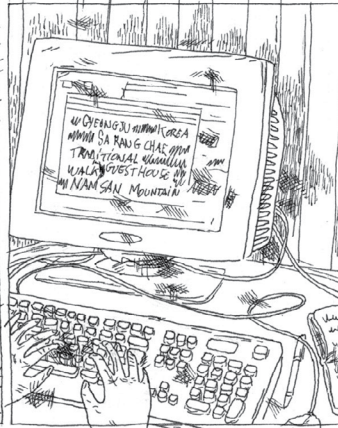 GYEONGJU KOREA
SA RANG CHAE
TRADITIONAL
WALK GUEST HOUSE
NAM SAN MOUNTAIN